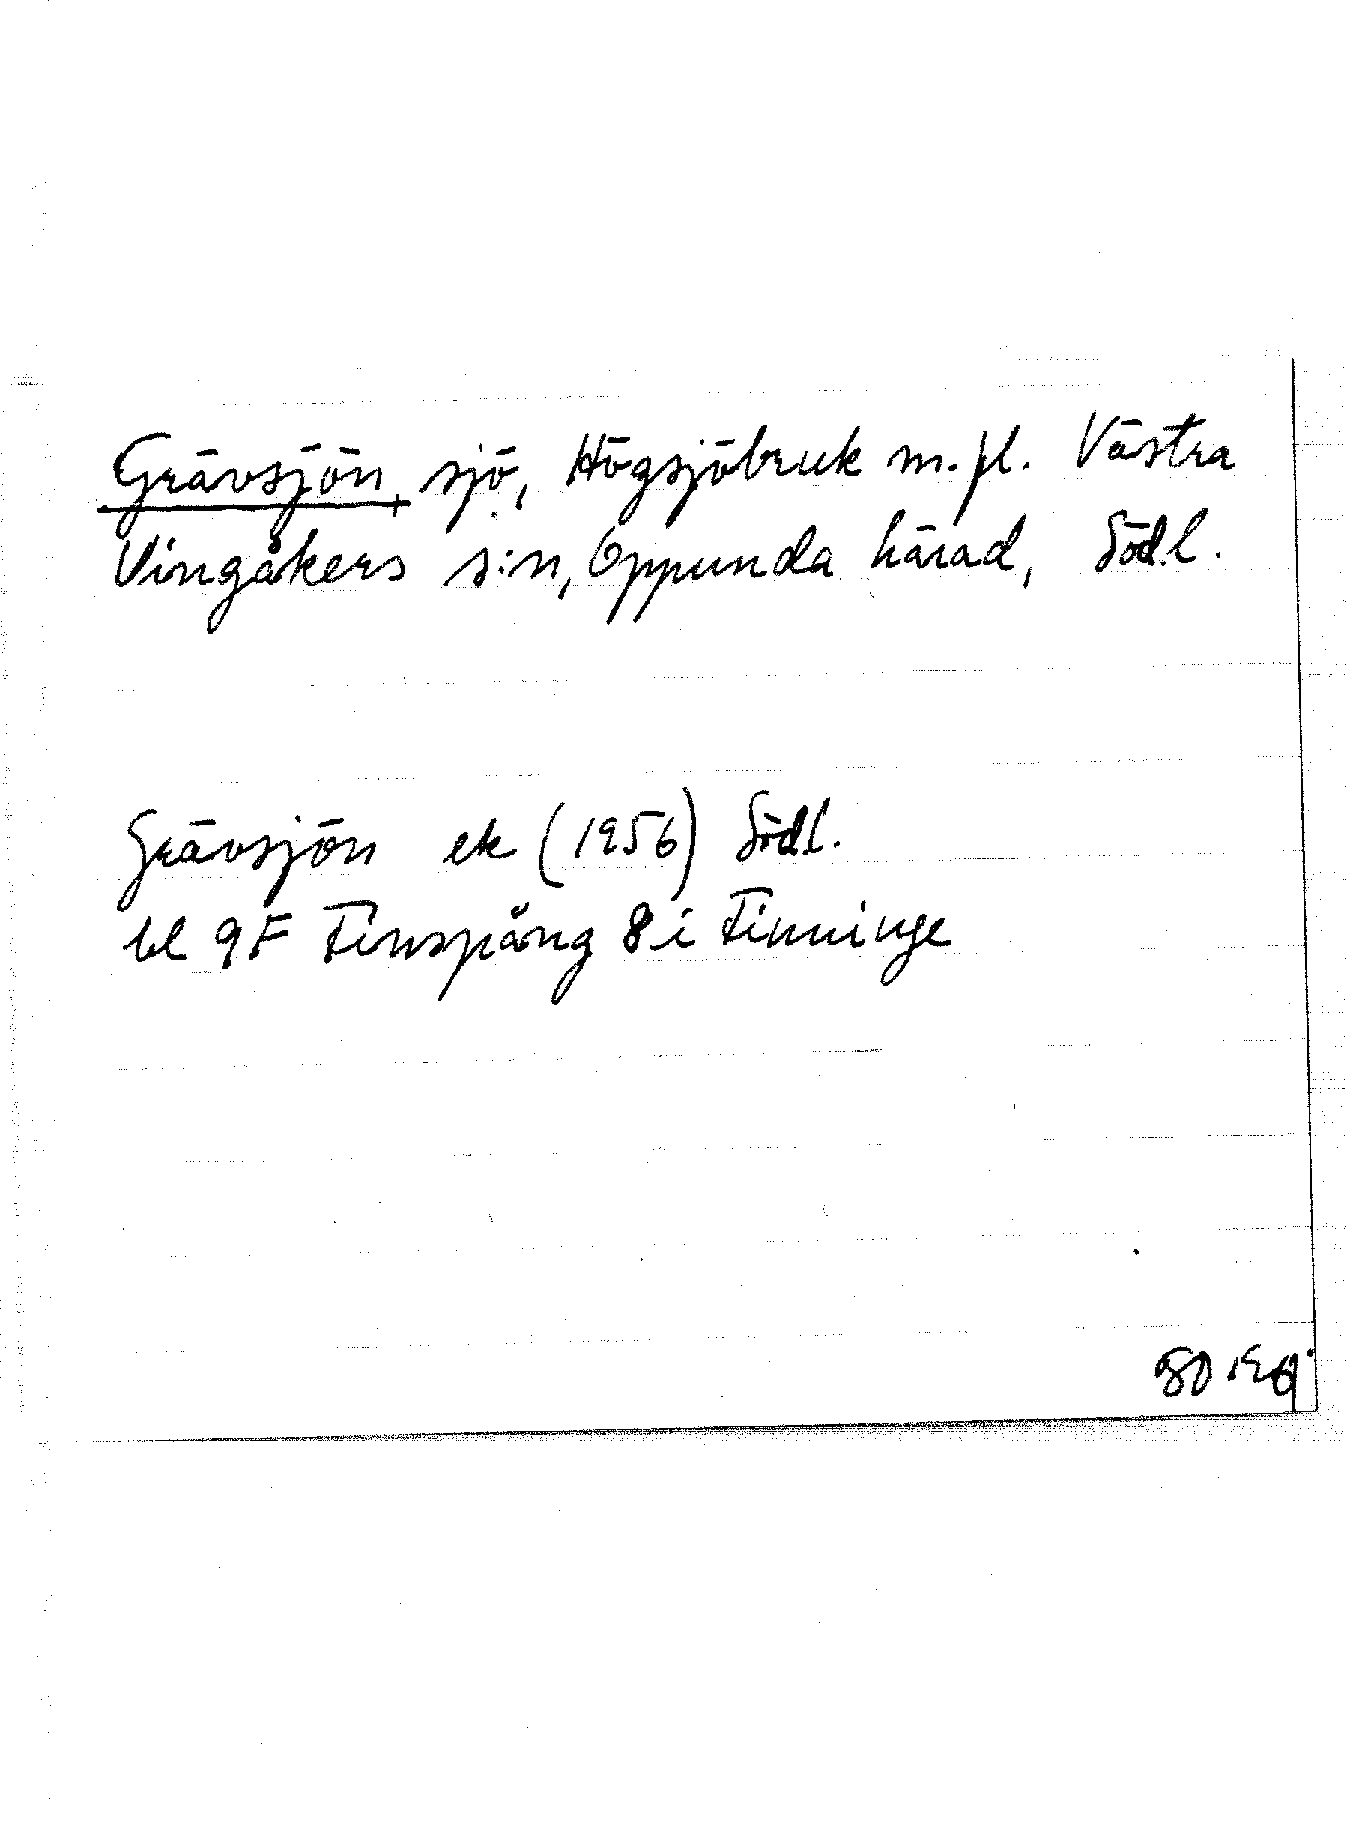 Grävsjön, sjö, Högsjöbruk m.fl. Västra
Vingåkers s:n, Oppunda härad, Södl.
Grävsjön ek (1956) Södl.
bl 9F Finspång 8i Tinninge